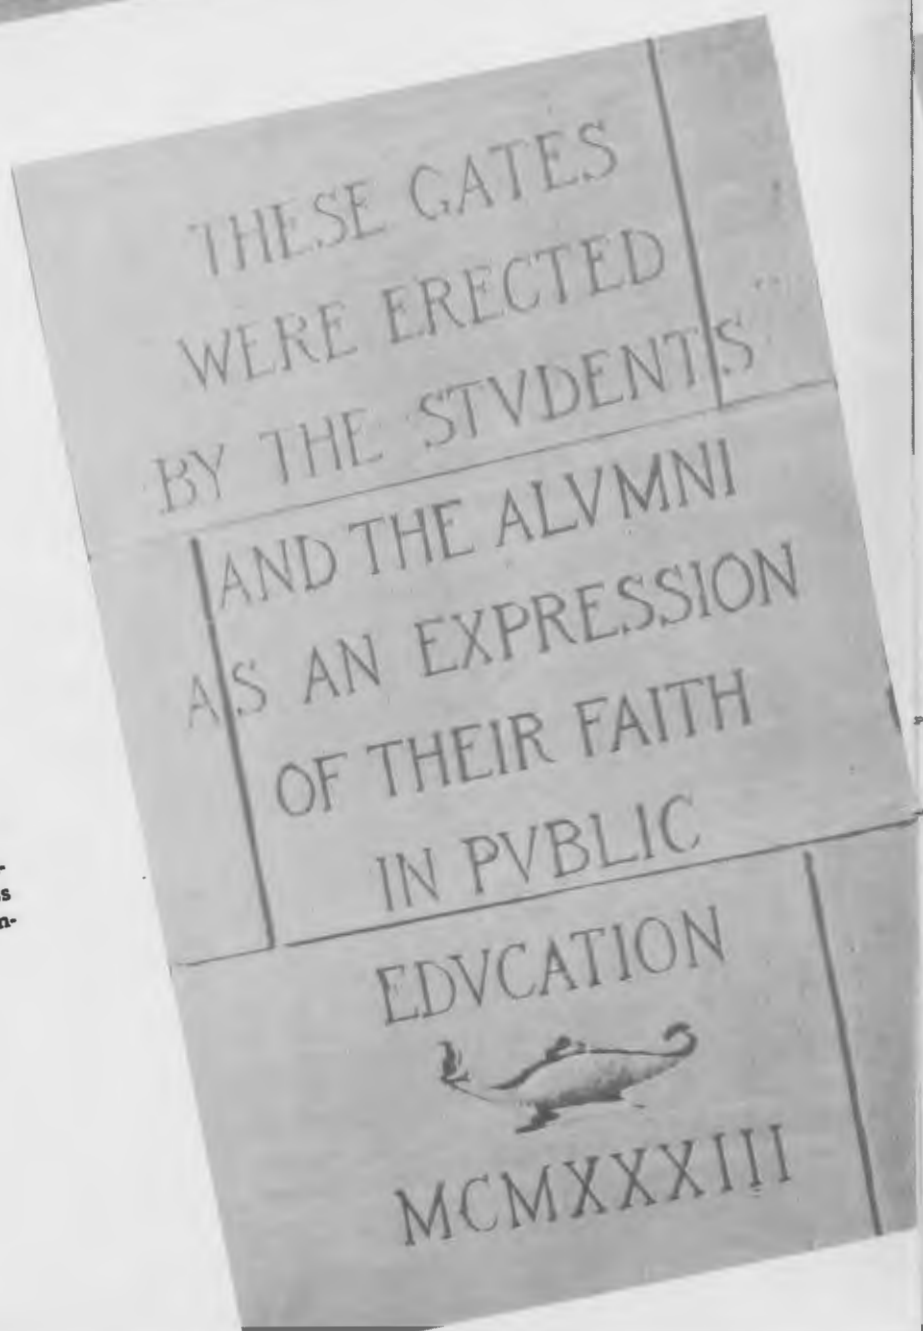 THESE GATES
WERE ERECTED
BY THE STVDENTS
AND THE ALVMNI
AS AN EXPRESSION
OF THEIR FAITH
IN PVBLIC
EDVCATION
MCMXXXIII